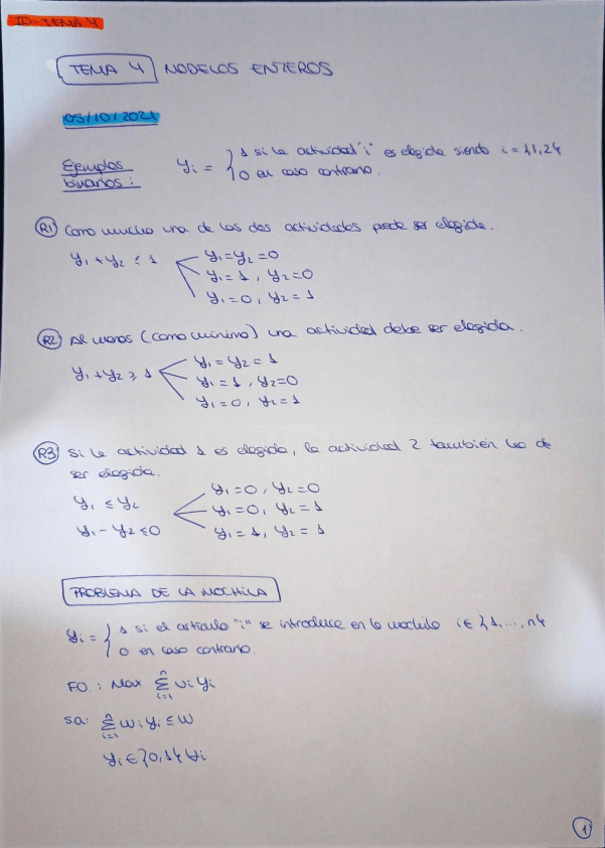 IO-TEMA 4
TEMA 4 MODELOS ENTEROS
05/10/2021
Ejemplos binarios: yi = { 1 si la actividad "i" es elegida siendo i = {1,2}
0 en caso contrario.
R1 Como mucho una de las dos actividades puede ser elegida.
y1 + y2 ≤ 1
y1 = y2 = 0
y1 = 1, y2 = 0
y1 = 0, y2 = 1
R2 Al menos (como mínimo) una actividad debe ser elegida.
y1 + y2 ≥ 1
y1 = y2 = 1
y1 = 1, y2 = 0
y1 = 0, y2 = 1
R3 Si la actividad 1 es elegida, la actividad 2 también ha de
ser elegida.
y1 ≤ y2
y1 - y2 ≤ 0
y1 = 0, y2 = 0
y1 = 0, y2 = 1
y1 = 1, y2 = 1
PROBLEMA DE LA MOCHILA
yi = { 1 si el artículo "i" se introduce en la mochila i ∈ {1, ..., n}
0 en caso contrario.
FO: Max ∑ i=1 n vi yi
sa: ∑ i=1 n wi yi ≤ W
yi ∈ {0,1} ∀i
1